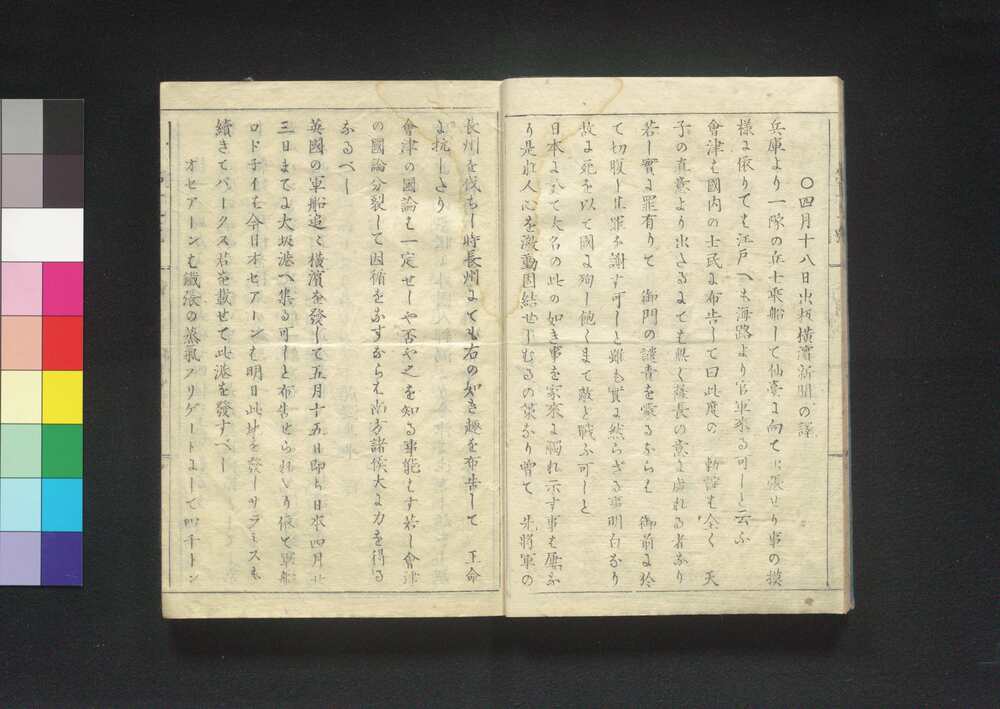 〇四月十八日出板横濱新聞の譯
兵庫より一隊の兵士乗船して仙臺に向て出張せり事の模
様に依りても江戸へも海路より官軍来る可しと云ふ
會津も國内の士民に布告して曰此度の 勅諚も全く 天
子の直意より出たるにても無く薩長の意に成れる者なり
若し實に罪有りて 御門の譴責を蒙るならも 御前に於
て切腹し其罪を謝す可しと雖も實に然らざる事明白なり
故に死を以て國に殉し飽くまて敵と戰ふ可しと
日本に於て大名の此の如き事を家來に觸れ示す事も屡な
り是れ人心を激動固結せしむるの策なり曽て 先將軍の
長州を伐ちし時長州にても右の如き趣を布告して 王命
に抗したり
會津の國論も一定せしや否や之を知る事能はす若し會津
の國論分裂して因循をなすならも南方諸侯大に力を得る
なるべし
英國の軍船追々横濱を發して五月十五日即ち日本四月廿
三日まてに大坂港へ集る可しと布告せられたり依て軍船
ロドネイも今日オセアーンも明日此地を發しサラミスも
續きてパークス君を載せて此港を發すべし
オセアーンも鐵張の蒸氣フリゲートにして四千トン